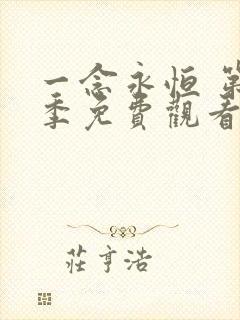 一念永恒 第
季免費觀看
莊亨浩